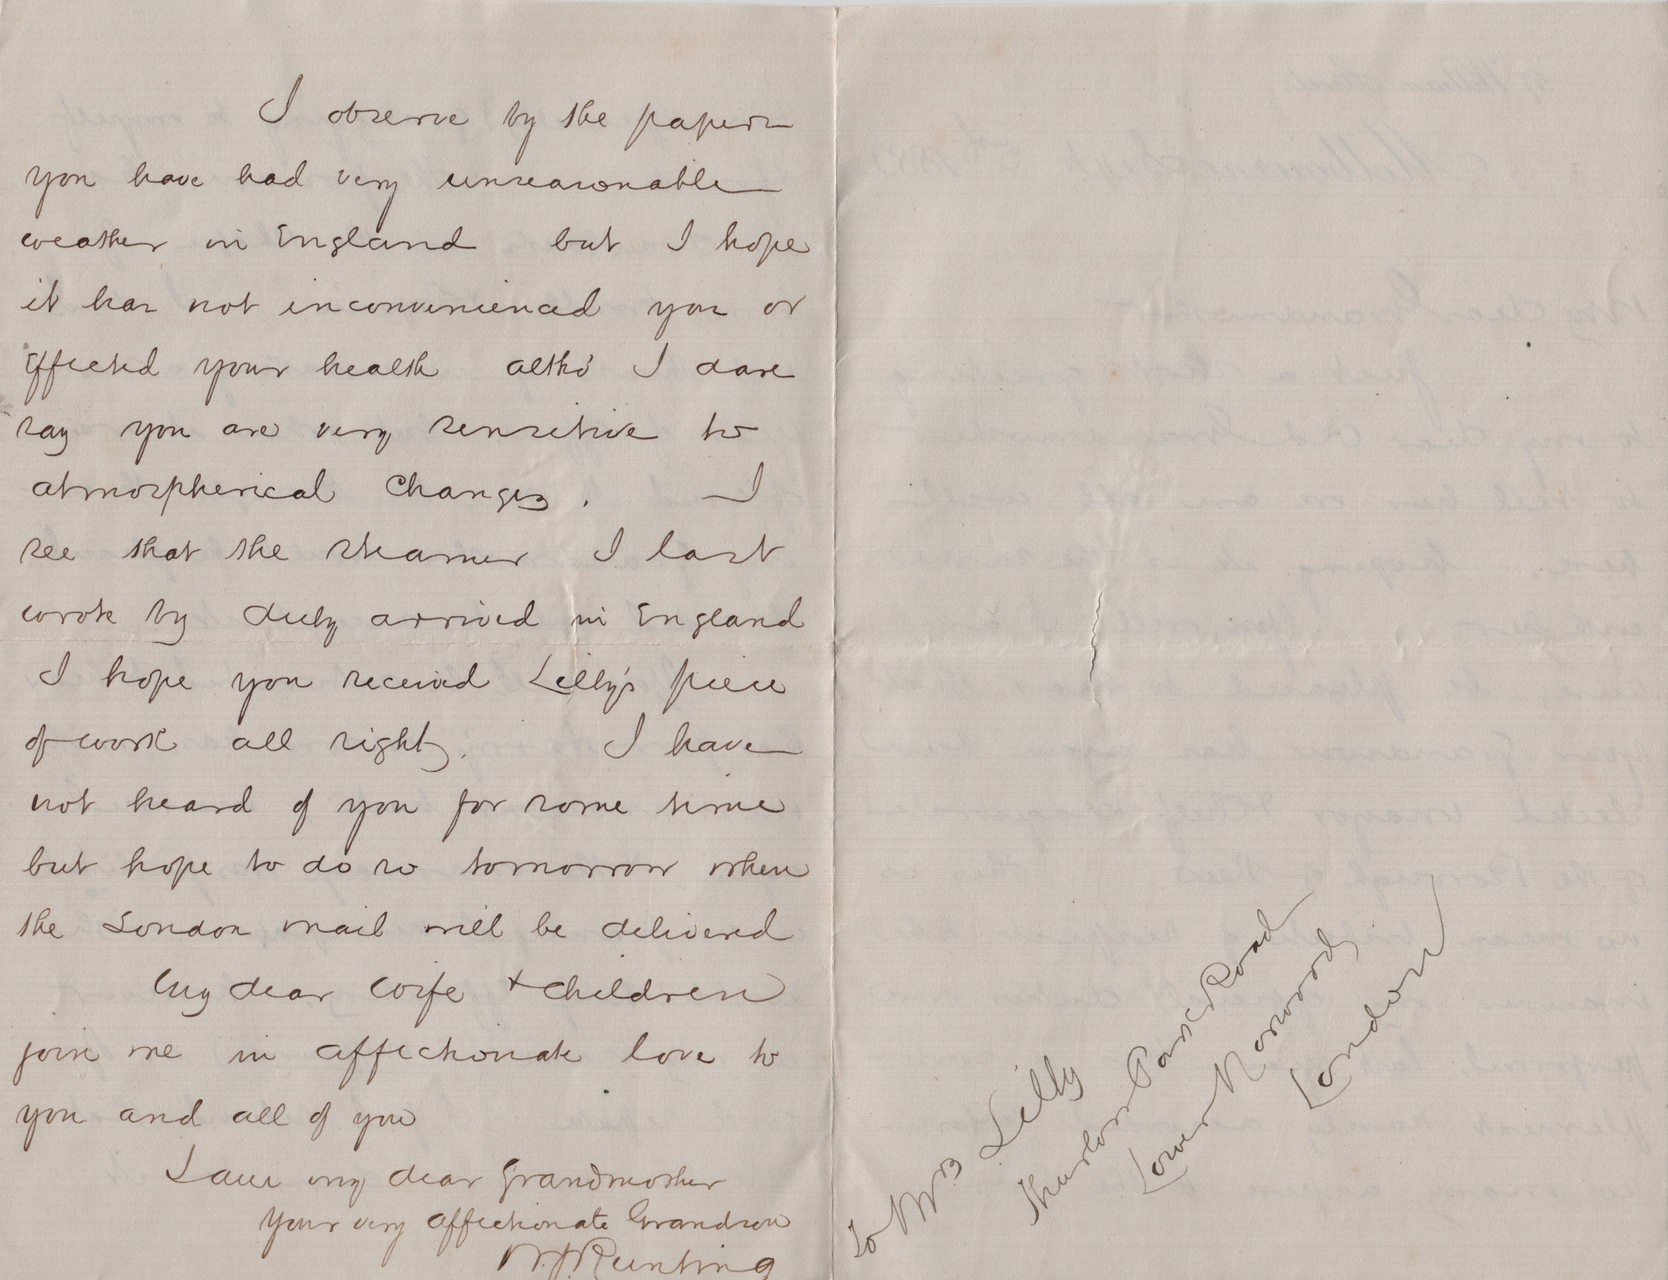 I observe by the papers
you have had very unseasonable
weather in England but I hope
it has not inconvenienced you or
effected your health altho' I dare
say you are very sensitive to
atmospherical changes. I
see that the steamer I last
wrote by duly arrived in England
I hope you received Lilly's piece
of work all right. I have
not heard of you for some time
but hope to do so tomorrow when
the London mail will be delivered
My dear wife + children
join me in affectionate love to
you and all of you
I am my dear Grandmother
Your very affectionate Grandson
W. J. Runting
To Mrs Lilly
Thurlow Park Road
Lower Norwood
London